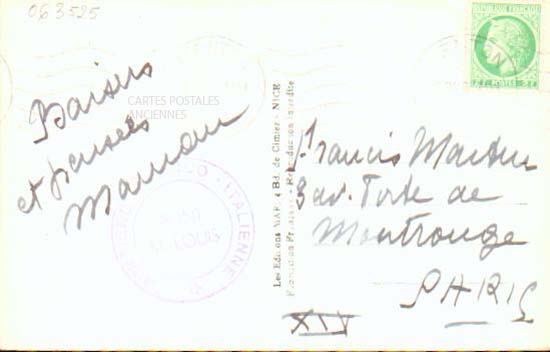 063525
REPUBLIQUE FRANCAISE
2F POSTES 2F
Baisers
et pensées
Maman
CARTES POSTALES
ANCIENNES
ITALIENNE
St LOUIS
Les Editions MAR, Bd. de Cimiez - NICE
Fabrication Française - Reproduction interdite
Francis
3 av. Porte de
Montrouge
PARIS
XIV